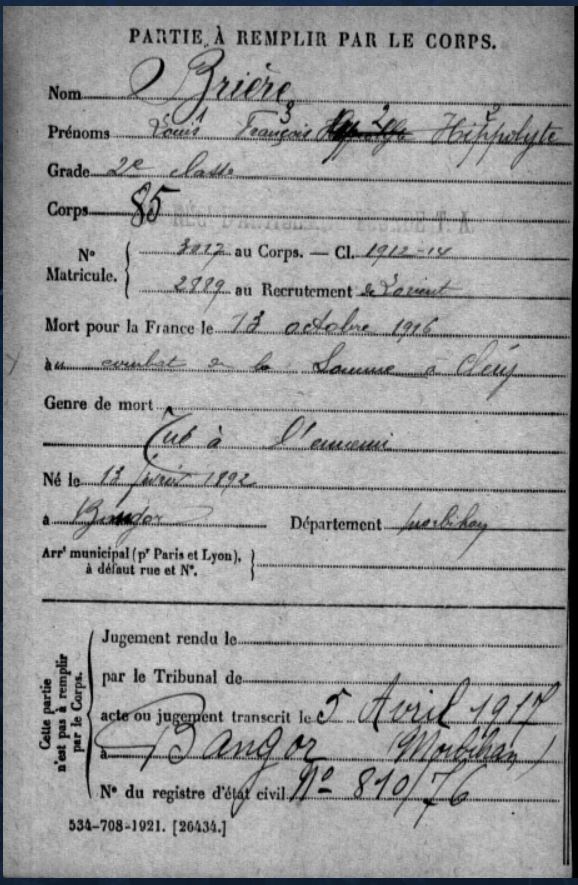 PARTIE À REMPLIR PAR LE CORPS.
Nom Brière
Prénoms Louis 1 François 3 2 Hippolyte
Grade 2e classe
Corps 85
N° Matricule. 3017 au Corps. — Cl. 1912-14
2889 au Recrutement de Lorient
Mort pour la France le 13 octobre 1916
au combat de la Somme à Cléry
Genre de mort
Tué à l'ennemi
Né le 13 février 1892
à Bangor Département Morbihan
Arrt municipal (pr Paris et Lyon),
à défaut rue et N°.
Cette partie
n'est pas à remplir
par le Corps.
Jugement rendu le
par le Tribunal de
acte ou jugement transcrit le 5 Avril 1917
à Bangor (Morbihan)
N° du registre d'état civil N° 810/76
534-708-1921. [26434.]